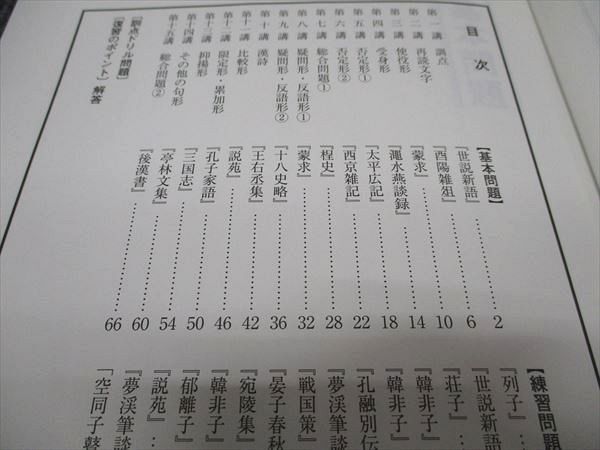 目次
第一講 訓点
第二講 再読文字
第三講 使役形
第四講 受身形
第五講 否定形①
第六講 否定形②
第七講 総合問題①
第八講 疑問形・反語形①
第九講 疑問形・反語形②
第十講 漢詩
第十一講 比較形
第十二講 限定形・累加形
第十三講 抑揚形
第十四講 その他の句形
第十五講 総合問題②
【訓点ドリル問題】
【復習のポイント】 解答
【基本問題】
『世説新語』……2
『酉陽雑俎』……6
『蒙求』……10
『澠水燕談録』……14
『太平広記』……18
『西京雑記』……22
『桯史』……28
『蒙求』……32
『十八史略』……36
『王右丞集』……42
『説苑』……46
『孔子家語』……50
『三国志』……54
『亭林文集』……60
『後漢書』……66
【練習問題
『列子』…
『世説新語
『荘子』…
『韓非子』
『韓非子』
『孔融別伝
『夢渓筆談
『戦国策』
『晏子春秋
『宛陵集』
『韓非子』
『郁離子』
『説苑』…
『夢渓筆談
「空同子瞽